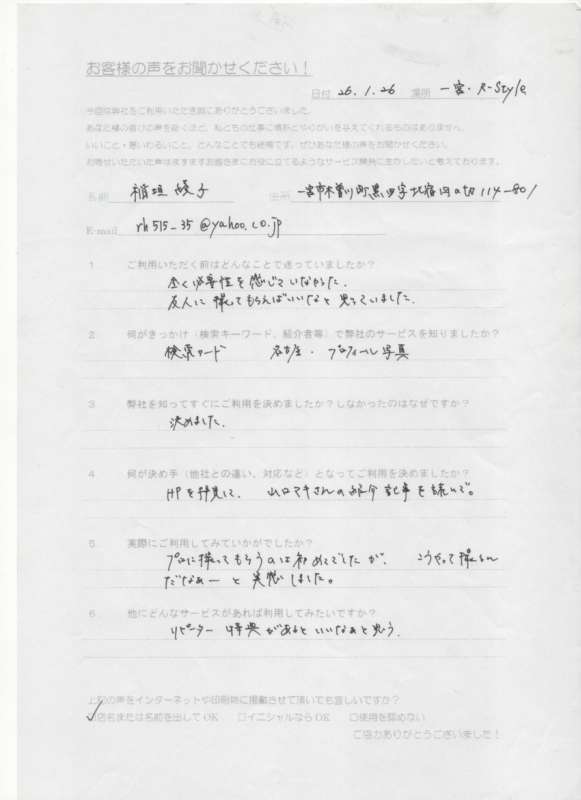 お客様の声をお聞かせください！
日付 26.1.26 場所 一宮・R-Style
今回は弊社をご利用いただき誠にありがとうございました。
あなた様の喜びの声を聞くほど、私どもの仕事に情熱とやりがいを与えてくれるものはありません。
いいこと・悪いわるいこと、どんなことでも結構です。ぜひあなた様の声をお聞かせください。
お寄せいただいた声はますますお客さまにお役に立てるようなサービス開発に生かしたいと考えております。
名前 稲垣 子 住所 一宮市木曽川町黒田字北宿 114-801
E-mail rh515_35@yahoo.co.jp
1 ご利用いただく前はどんなことで迷っていましたか？
全く必要性を感じていなかった。
友人に撮してもらえばいいなと思っていました。
2 何がきっかけ（検索キーワード、紹介者等）で弊社のサービスを知りましたか？
検索ワード 名古屋・プロフィール写真
3 弊社を知ってすぐにご利用を決めましたか？しなかったのはなぜですか？
決めました。
4 何が決め手（他社との違い、対応など）となってご利用を決めましたか？
HPを拝見して、山口マキさんの紹介記事を読んで。
5 実際にご利用してみていかがでしたか？
プロに撮ってもらうのは初めてでしたが、こうやって撮るん
だなぁーと実感しました。
6 他にどんなサービスがあれば利用してみたいですか？
リピーター特典があるといいなぁと思う。
上記の声をインターネットや印刷物に掲載させて頂いても宜しいですか？
☑店名または名前を出してOK □イニシャルならOK □使用を認めない
ご協力ありがとうございました！